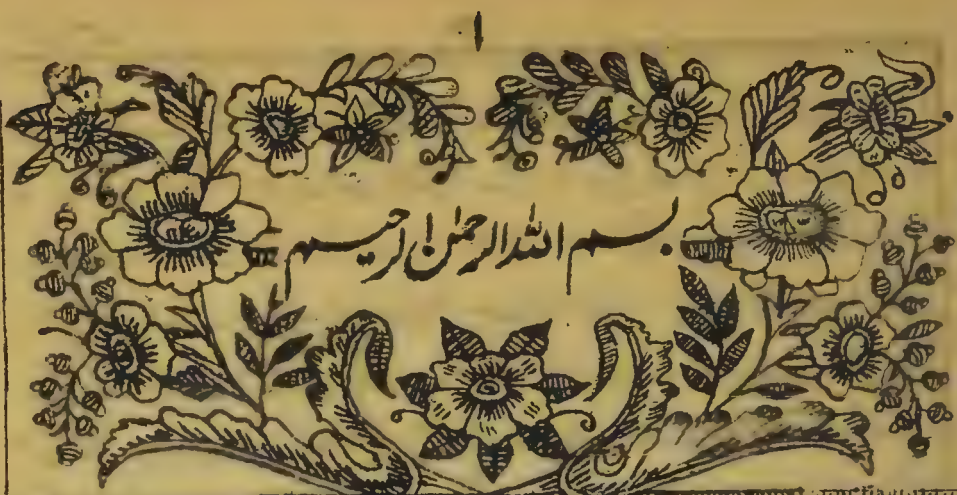 ۱
بسم اللہ الرحمٰن الرحیم